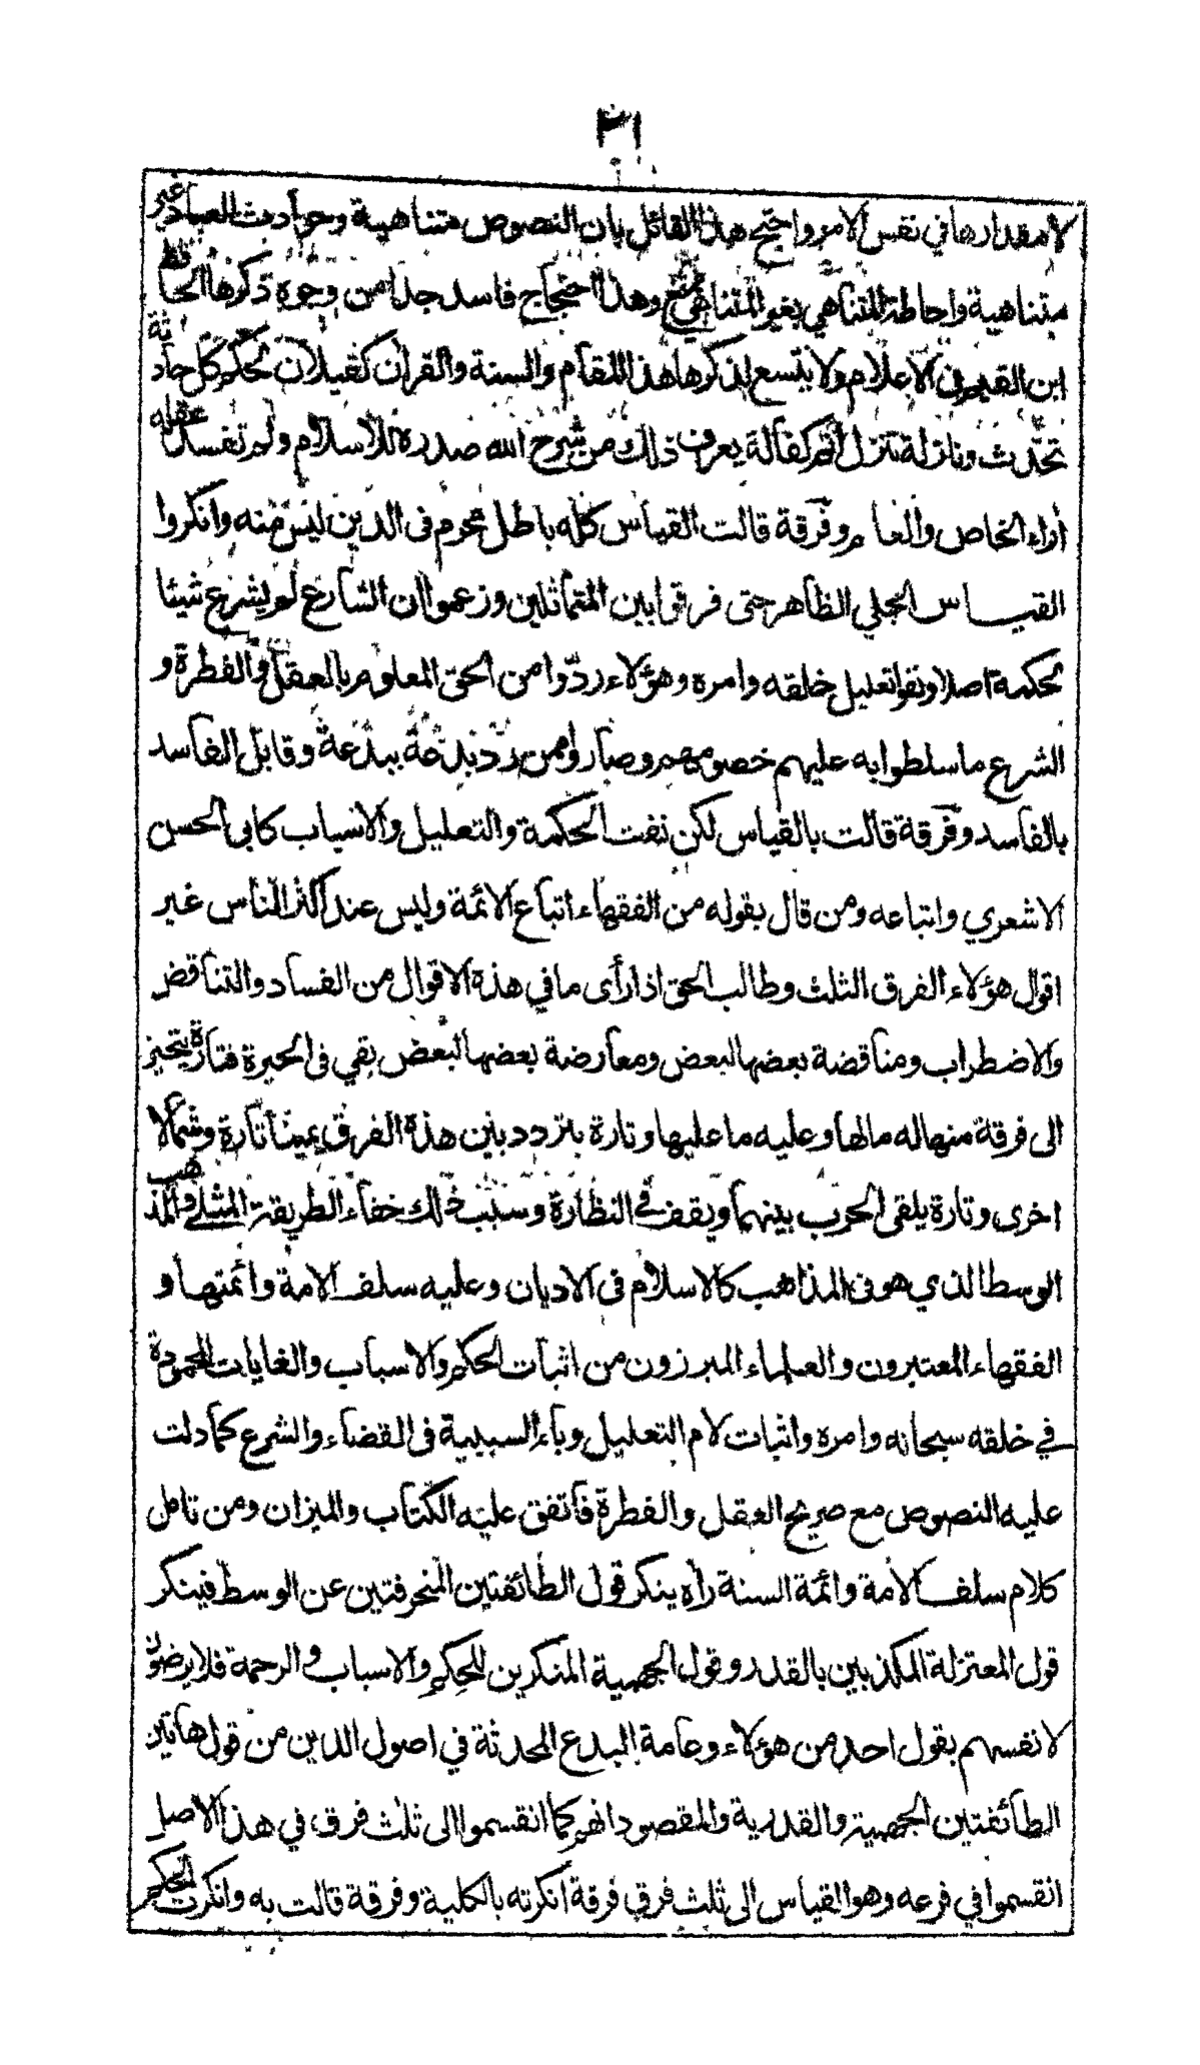 ٣١
لا مقدارها في نفس الامر واحتج هذا القائل بان النصوص متناهية وحوادث العباد غير
متناهية واحاطة المتناهي بغير المتناهي ممتنع وهذا احتجاج فاسد جدا من وجوه ذكرها الحافظ
ابن القيم فى الاعلام ولا يتسع لذكرها هذا المقام والسنة والقرآن كفيلان بحكم كل حادثة
تحدث ونازلة تنزل اتم كفالة يعرف ذلك من شرح الله صدره للاسلام ولم تفسد عقله
أراء الخاص والعام وفرقة قالت القياس كله باطل محرم فى الدين ليس منه وانكروا
القياس الجلي الظاهر حتى فرقوا بين المتماثلين وزعموا ان الشارع لم يشرع شيئا
لحكمة اصلا ونفوا تعليل خلقه وامره وهؤلاء ردّوا من الحق المعلوم بالعقل والفطرة و
الشرع ما سلطوا به عليهم خصومهم وصاروا ممن رد بدعة ببدعة وقابل الفاسد
بالفاسد وفرقة قالت بالقياس لكن نفت الحكمة والتعليل والاسباب كابى الحسن
الاشعري واتباعه ومن قال بقوله من الفقهاء اتباع الائمة وليس عند اكثر الناس غير
اقوال هؤلاء الفرق الثلث وطالب الحق اذا رأى ما في هذه الاقوال من الفساد والتناقض
والاضطراب ومناقضة بعضها لبعض ومعارضة بعضها لبعض بقي فى الحيرة فتارة يتحيز
الى فرقة منها له مالها وعليه ما عليها وتارة يتردد بين هذه الفرق يمينا تارة وشمالا
اخرى وتارة يلقى الحرب بينهما ويقف في النظارة وسبب ذلك خفاء الطريقة المثلى والمذهب
الوسط الذي هو فى المذاهب كالاسلام فى الاديان وعليه سلف الامة وائمتها و
الفقهاء المعتبرون والعلماء المبرزون من اثبات الحكم والاسباب والغايات المحمودة
في خلقه سبحانه وامره واثبات لام التعليل وباء السببية فى القضاء والشرع كما دلت
عليه النصوص مع صريح العقل والفطرة فاتفق عليه الكتاب والميزان ومن تامل
كلام سلف الامة وائمة السنة رأه ينكر قول الطائفتين المنحرفتين عن الوسط فينكر
قول المعتزلة المكذبين بالقدر وقول الجهمية المنكرين للحكم والاسباب والرحمة فلا يرضون
لانفسهم بقول احد من هؤلاء وعامة البدع المحدثة في اصول الدين من قول هاتين
الطائفتين الجهمية والقدرية والمقصود انهم كما انقسموا الى ثلث فرق في هذا الاصل
انقسموا في فرعه وهو القياس الى ثلث فرق فرقة انكرته بالكلية وفرقة قالت به وانكرت الحكم